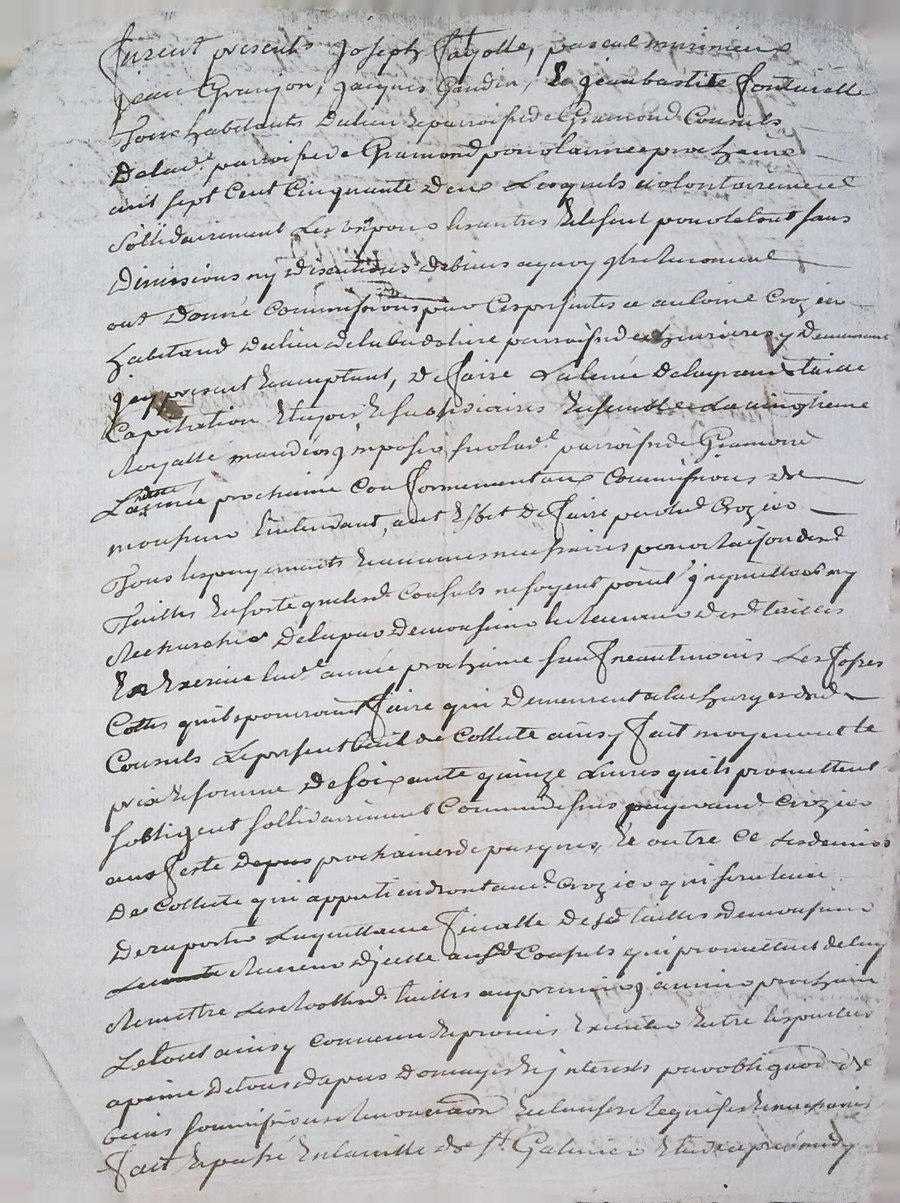 furent presents joseph fayolle, pascal murinieux
jean Granjon, jacques Gaudin, Et jeanbastite fonturelle
Tous habitants dulieu Et parroisse de Gramond Consuls
Delad.e parroisse de Gramond pour lannee prochaine
mil sept Cent Cinquante deux Lesquels volontairement
Sollidairement Les uns pour les autres Et leseul pour letout sans
Divissions ny discutions debiens aquoy
ont Donné Commissions par Cespresentes a antoine Crozier
habitand dulieu delabadoliere parroisse de y Demeurant
jcy present Enacceptant, de faire Lalevée delagrande taille
Capitation Et Subsidiaires Ensemble Lavingtieme
Royalle mandés jmposés surlad.e parroisse de Gramond
Lannée prochaine Conformement aux Commissions de
monsieur Lintendant, aut Effet de faire parled. Crozier
Tous lespayements Enavances necessaires pour Raison desd.
Tailles Ensorte quelesd. Consuls nesoyent point jnquiettes ny
Recherchés Delapar Demonsieur le Receveur desd. tailles
En Exercice lad.e année prochaine sauf neantmoins Les fosses
Cottes quils pourroint faire qui Demeurent alacharge desd.
Consuls Lepresent bail de Collecte ainsy fait moyennant le
prix Et somme De soixante quinze Livres quils promettent
Sobligent sollidairement Comme dessus payer aud. Crozier
aux feste depasques prochaines, Et outre Ce Lesdeniers
De Collecte qui appartiendront aud. Crozier qui sera tenu
De raporter Laquittance finalle desd. tailles demonsieur
Le Receveur djcelle ausd. Consuls qui promettent deluy
Remettre Lesroolles d. tailles aupremier janvier prochain
Letout ainsy convenu Et promis Executer Entre lesparties
apeine detous depens domages Et jnterests par obligaon de
biens soumissions Renonciaon Et clauses Requises Et necessaires
fait Et passé En laville de St. Galmier Etude